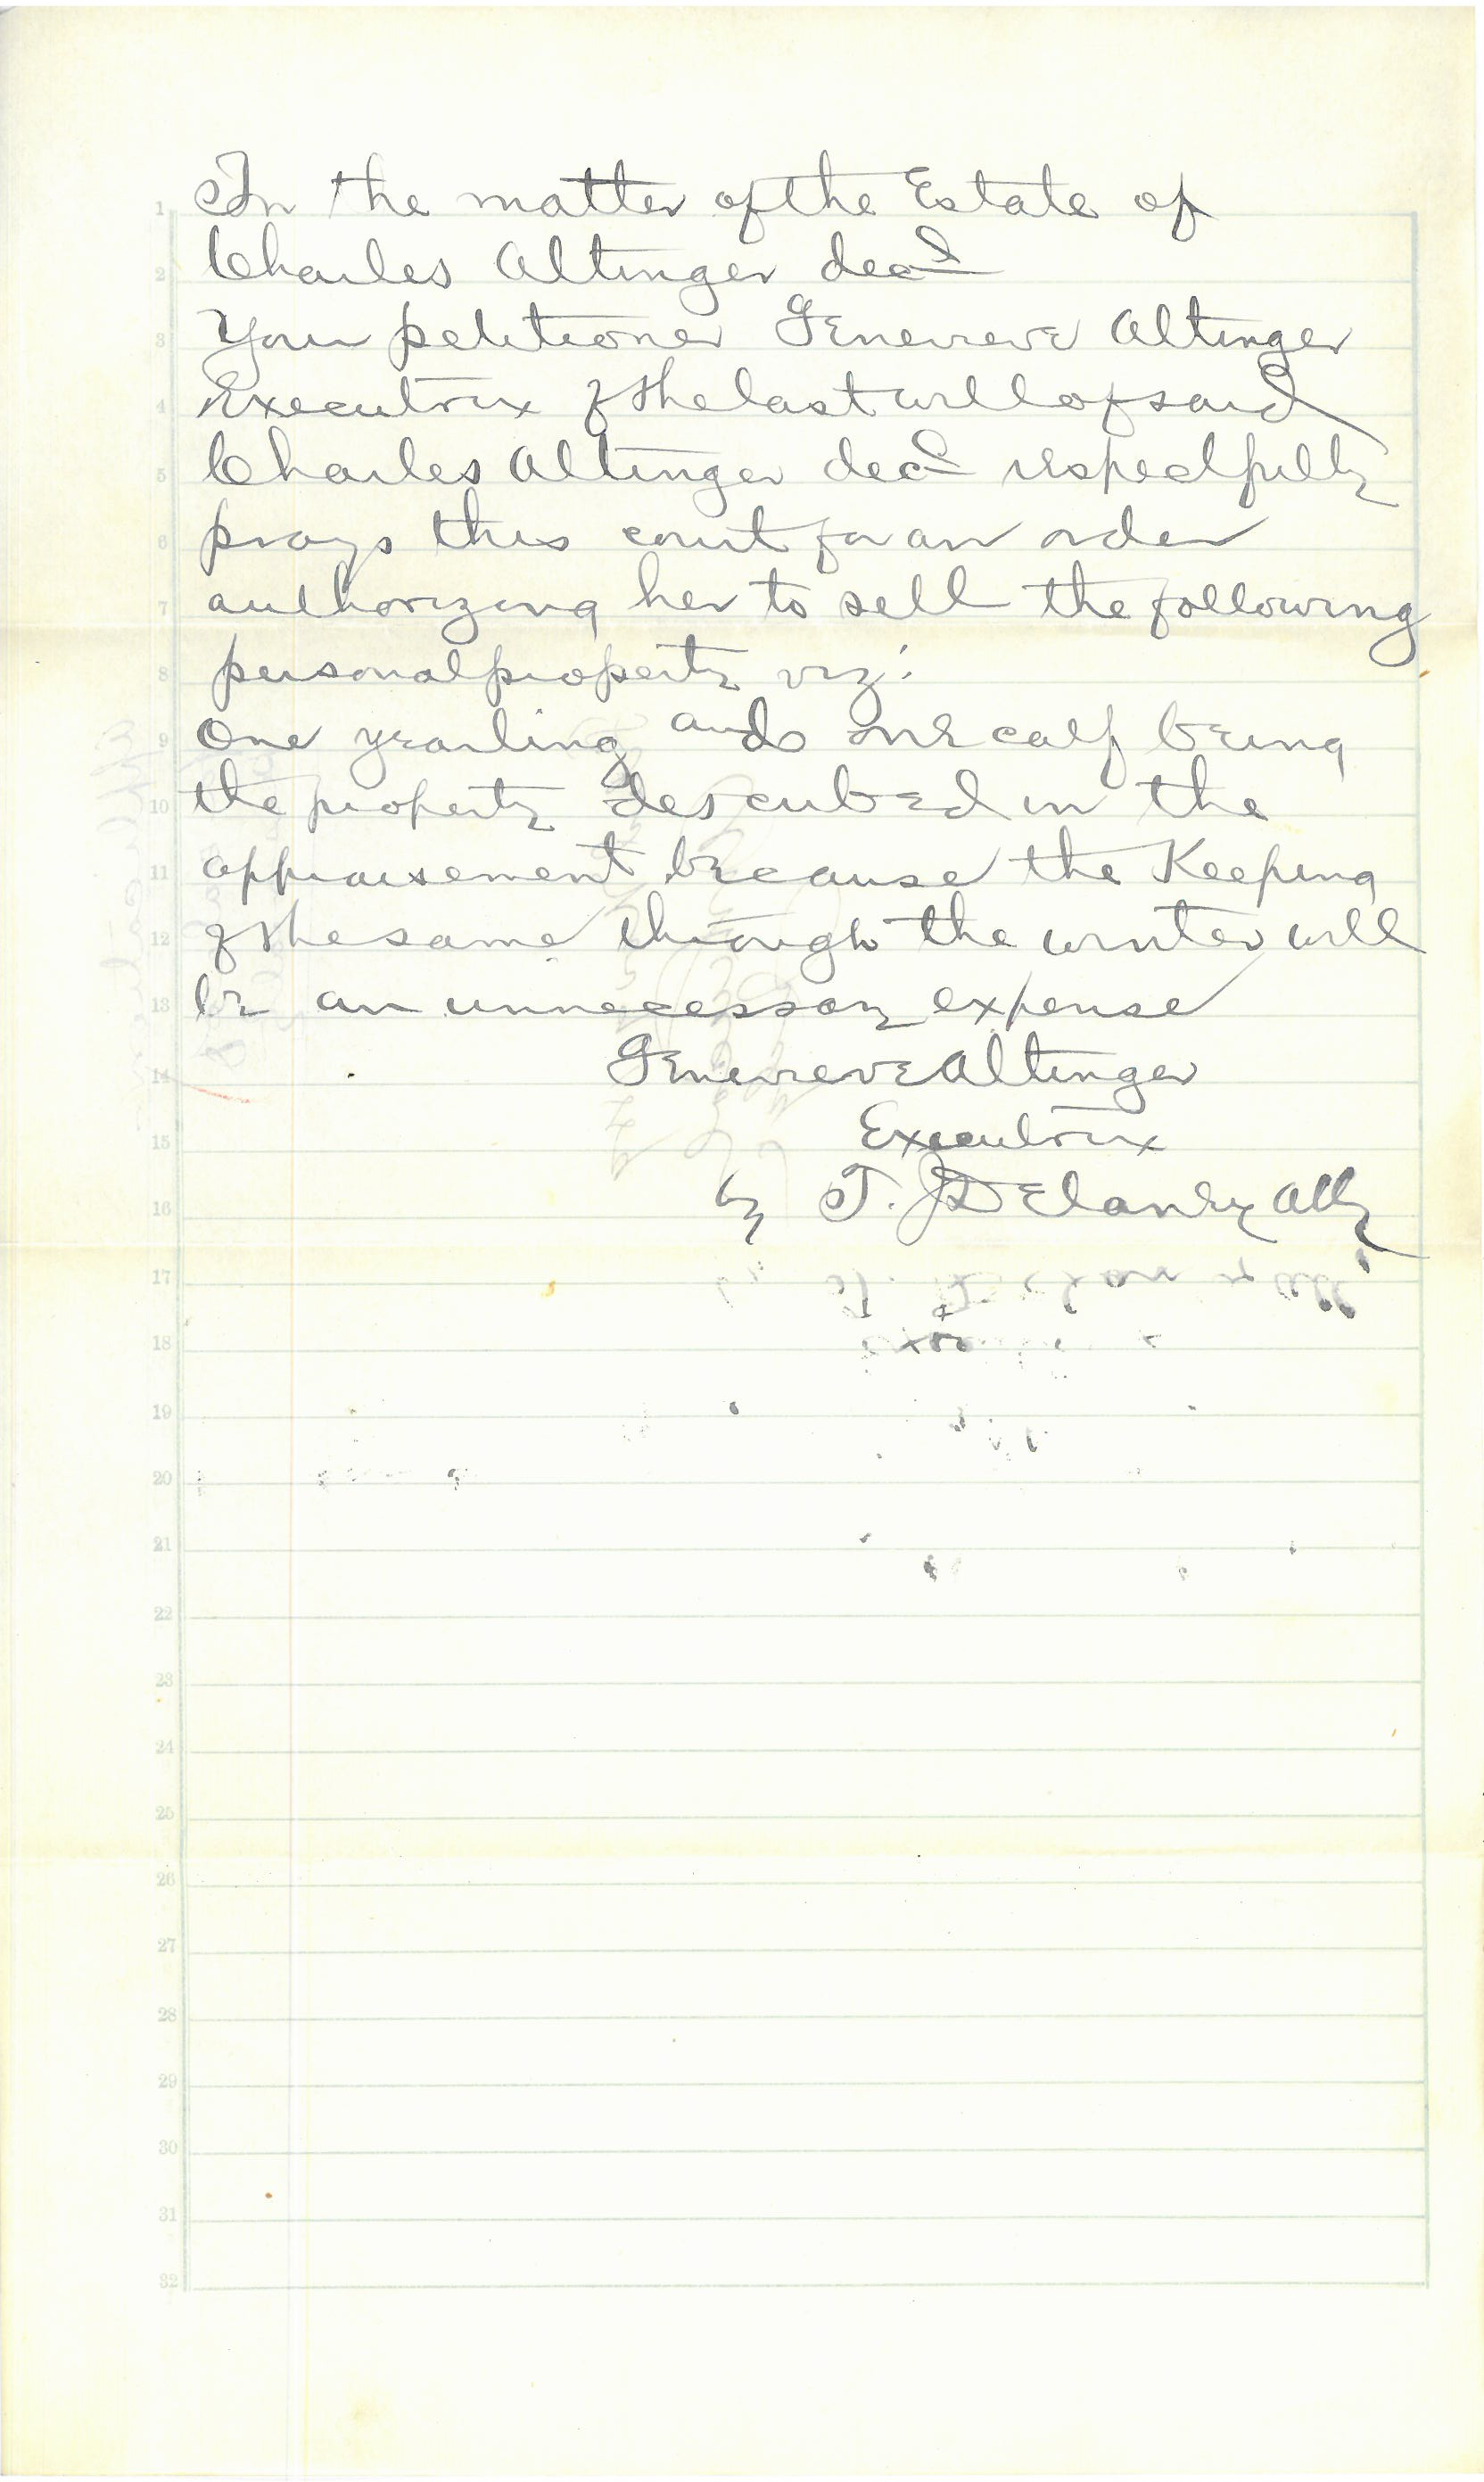 In the matter of the Estate of
Charles Altinger decd
Your petitioner Genevieve Altinger
Executrix of the last will of said
Charles Altinger decd respectfully
prays this court for an order
authorizing her to sell the following
personal property viz:
One yearling and one calf being
the property described in the
appraisement because the Keeping
of the same through the winter will
be an unnecessary expense
Genevieve Altinger
Executrix
by T. J. Delaney Atty
1
2
3
4
5
6
7
8
9
10
11
12
13
14
15
16
17
18
19
20
21
22
23
24
25
26
27
28
29
30
31
32